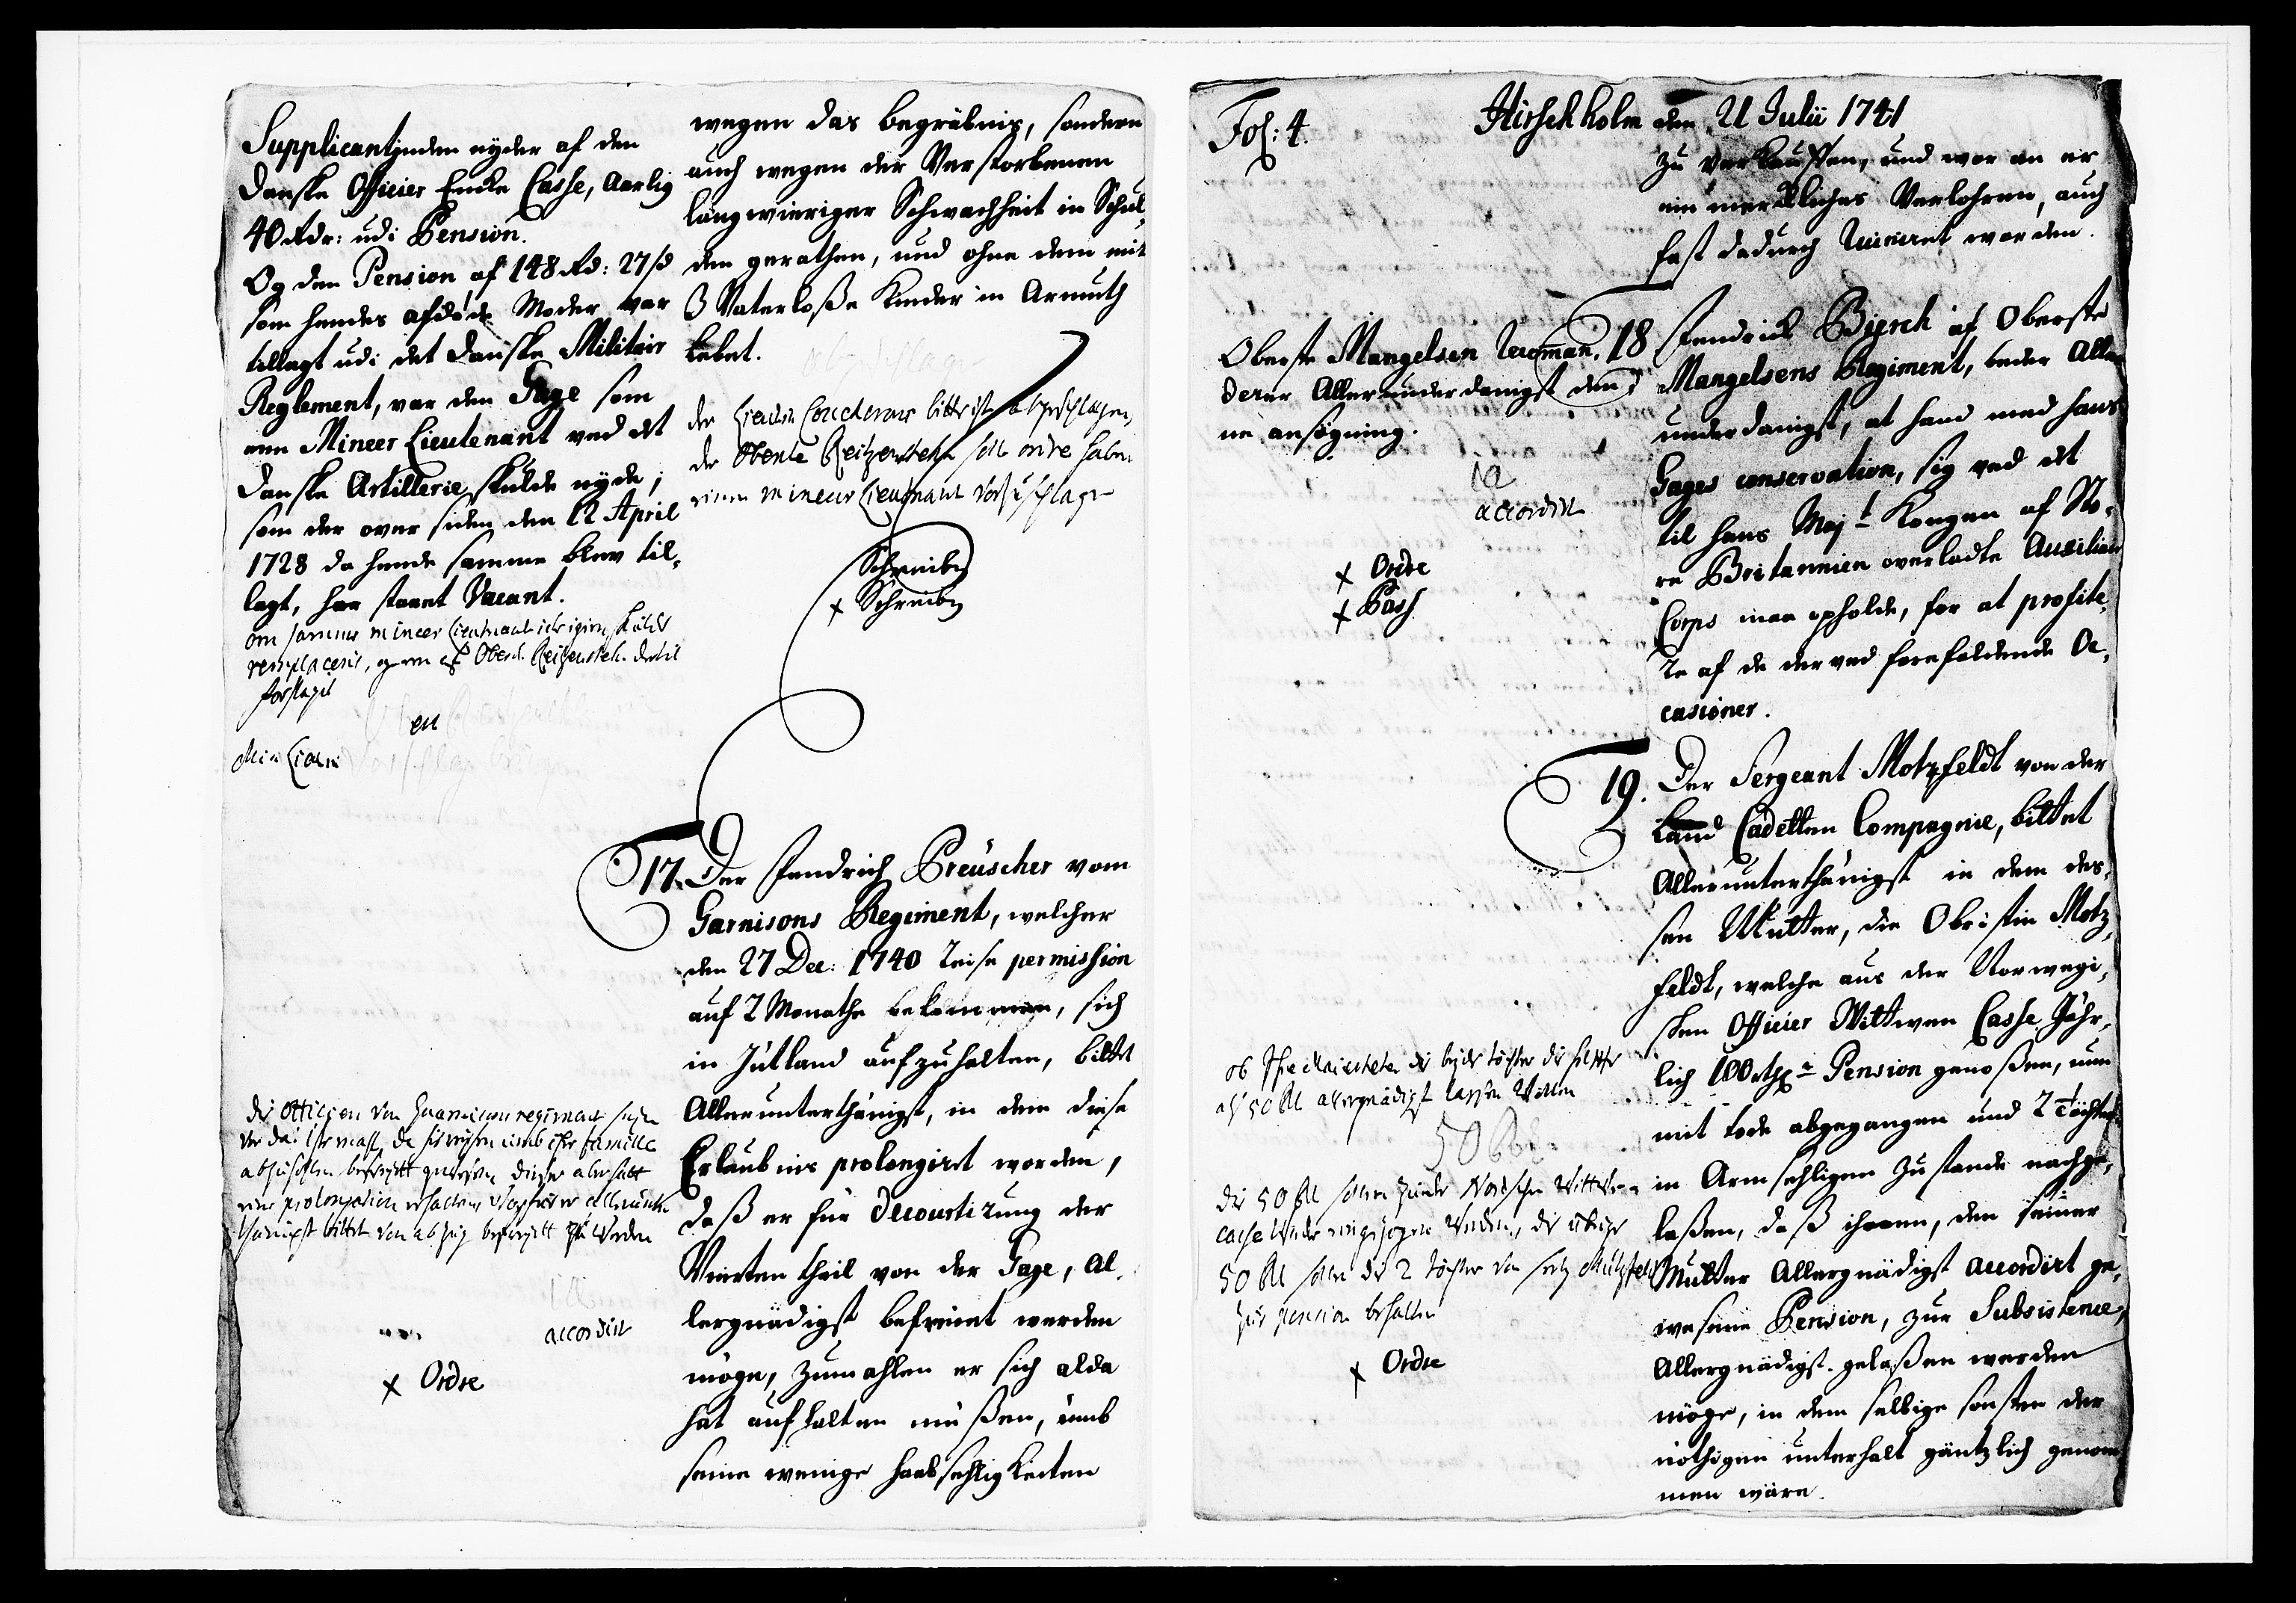 Supplicantinden nyder af den
danske Officier Encke Casse, Aarlig
40 Rdr: udi Pension.
Og den Pension af 148 Rd: 27 ß
som hendes afdøde Moder var
tillagt udi det danske Militair
Reglement, var den Gage som
een Mineer Lieutenant ved det
danske Artillerie skulde nyde,
som der over siden den 12 April
1728 da hende samme blev til,
lagt, har staaet Vacant.
om samme mineer Lieutnant igien skulde
remplaceris, og om Oberst Reitzenstein dertil
forslagit
en
wegen das begräbnis, sondern
auch wegen der Verstorbenen
langwieriger Schwachheit in Schul,
den gerathen, und ohne dem mit
3 Vaterloße Kinder in Armuth
lebet.
der Conderans bitte ist abgeschlagen,
der Oberste Reitzenstein soll ordre haben
einen mineur Lieutnant vorzuschlagen
Schreiben
x Schreiben
17. Der Fendrich Preuscher vom
Garnisons Regiment, welcher
den 27 Dec: 1740 reise permission
auf 2 Monathe bekommen, sich
in Jütland aufzuhalten, bittet
Allerunterthänigst, in dem diese
Erlaubnis prolongirt worden,
daß er für decourtirung der
Vierten theil von der Gage, Al,
lergnädigst befreiet werden
möge, zumahlen er sich alda
hat aufhalten müßen, umb
seine wenige haabsehligkeiten
die Officiers von Guarnisons regiment
das erste mahl, da sie reisen umb ihre famille
abzuhohlen befreyet gewesen, dieser aber hatt
eine prolongation erhalten, er allerunter
thänigst bittet von abzug befreyet zu werden
ia
accordirt
x Ordre
Fol: 4.
Hirschholm den 21 Julii 1741
zu verkauffen, und wor an er
ein merckliches Verlohren, auch
fast dadurch ruiniret worden.
Oberste Mangelsen recoman,
derer Allerunderdanigst den,
ne ansøgning.
ia
accordirt
x Ordre
x Pass
18 Fendrich Biersch af Oberste
Mangelsens Regiment, beder Aller
underdanigst, at hand med hans
Gages conservation, sig ved det
til hans Majt Kongen af Sto,
re Britannien overladte Auxiliair
Corps maa opholde, for at profite,
re af de der ved forefaldende Oc,
casioner.
19. Der Sergeant Motzfeldt von der
Land Cadetten Compagnie, bittet
Allerunterthänigst in dem des,
sen Mutter, die Obristin Motz,
feldt, welche aus der Norwegi,
schen Officier Wittwen Casse Jähr,
lich 100 Rthlr Pension genoßen, nun
mit tode abgegangen und 2 Töchter
in Armsehligen Zustande nachge,
laßen, daß ihnen, den seiner
Mutter Allergnädigst accordirt ge,
wesene Pension, zur Subsistence,
Allergnädigst gelaßen werden
möge, in dem selbige sonsten der
nöthigen unterhalt gäntzlich genom
men wäre.
ob Ihre Maiestet die beyde töchter die helffte
als 50 Rl allergnädigst lassen wollen
50 Rl
die 50 Rl sollen Wittwen
casse wieder eingezogen werden, die übrige
50 Rl sollen die 2 töchter von Motzfeldt
zur pension behalten
x Ordre